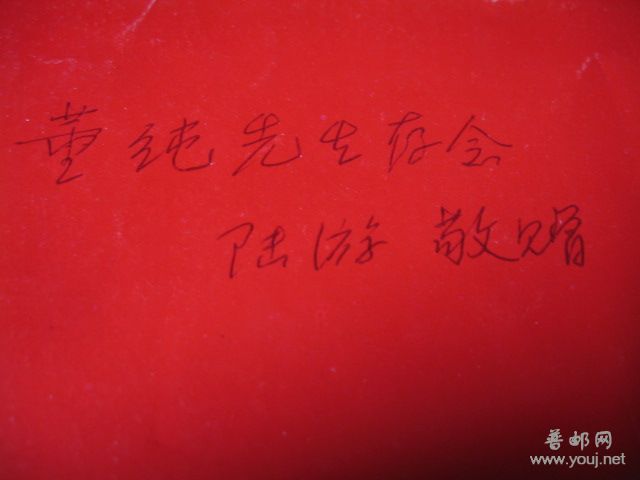 董纯先生存念
陆游 敬赠
普邮网
www.youj.net